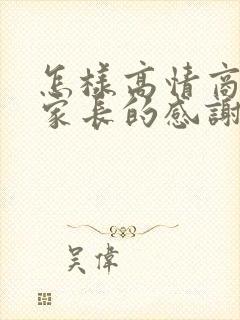 怎樣高情商
家長的感謝
吳偉